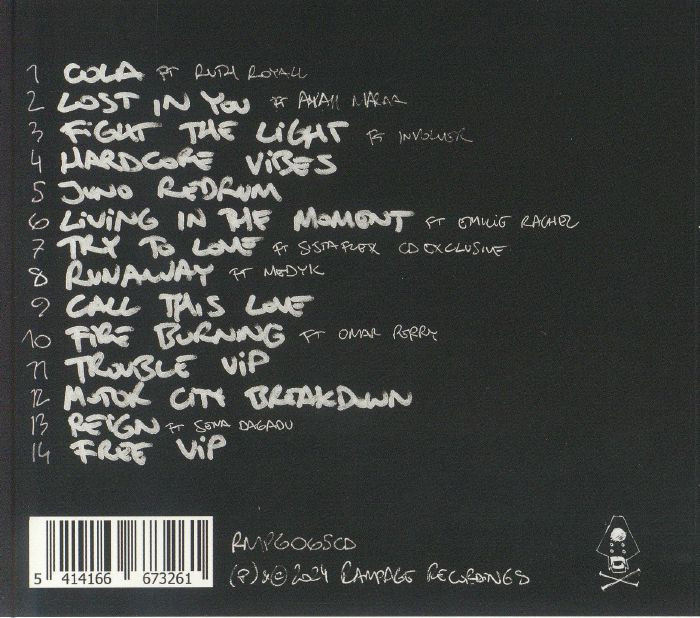 1 COLA FT RUTH ROYALL
2 LOST IN YOU FT AYAH MARAR
3 FIGHT THE LIGHT FT INVOLVER
4 HARDCORE VIBES
5 JUNO REDRUM
6 LIVING IN THE MOMENT FT EMILIE RACHEL
7 TRY TO LOVE FT SISTAFLEX CD EXCLUSIVE
8 RUNAWAY FT MEDYK
9 CALL THIS LOVE
10 FIRE BURNING FT OMAR PERRY
11 TROUBLE VIP
12 MOTOR CITY BREAKDOWN
13 REIGN FT SENA DAGADU
14 FREE VIP
RMPG065CD
(P) & © 2024 RAMPAGE RECORDINGS
5 414166 673261